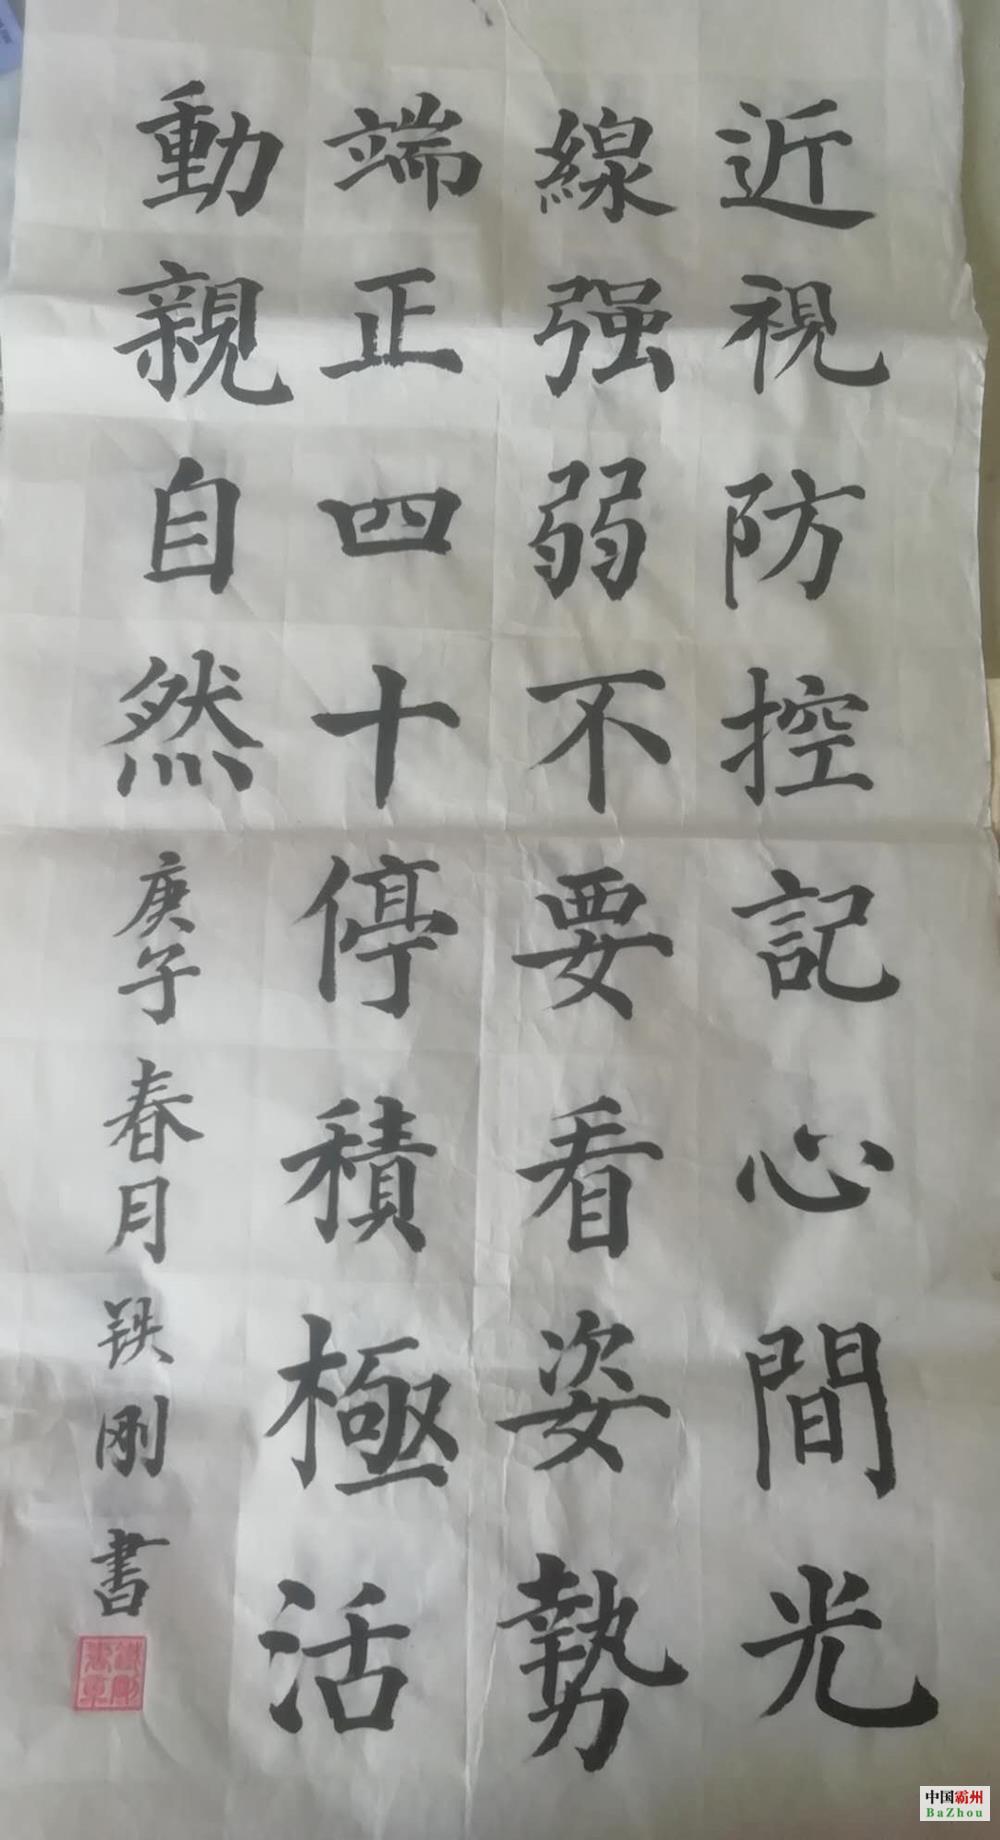 近視防控記心間光
線强弱不要看姿勢
端正四十停積極活
動親自然
庚子春月鉄刚書
中国霸州
BaZhou